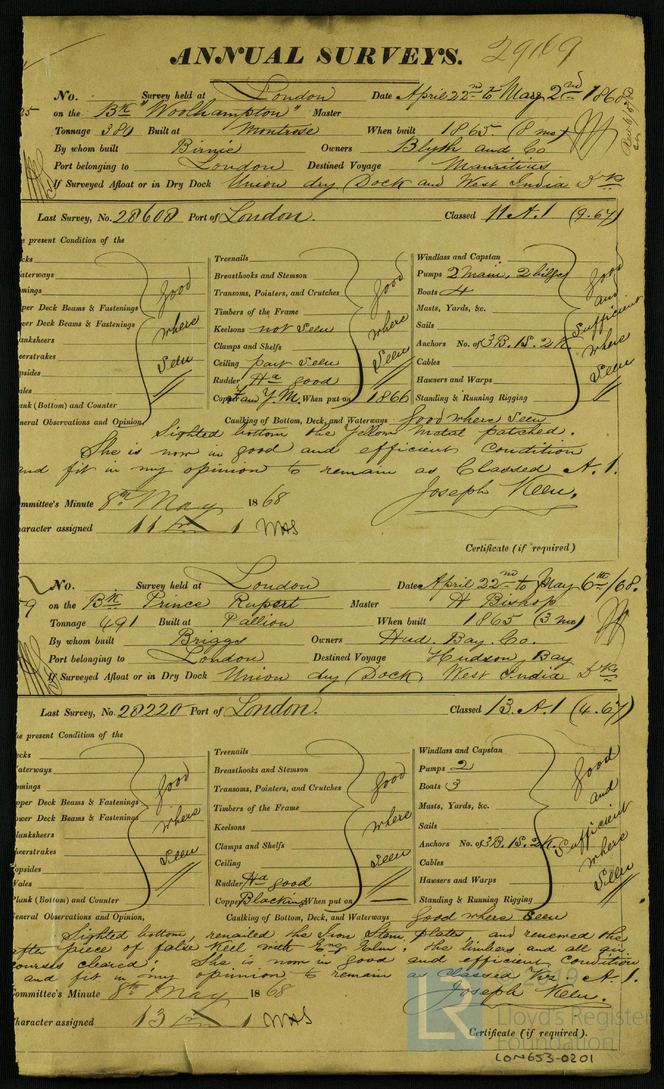 ANNUAL SURVEYS. 29169
No. Survey held at London Date April 22nd to May 2nd 1868
on the Bk "Woolhampton" Master
Tonnage 380 Built at Montrose When built 1865 (8 mo)
By whom built Birnie Owners Blyth and Co
Port belonging to London Destined Voyage Mauritius
If Surveyed Afloat or in Dry Dock Union dry Dock and West India Dks
Last Survey, No. 28608 Port of London. Classed 11 A.1 (9.67)
present Condition of the
Treenails
Windlass and Capstan
Breasthooks and Stemson
Pumps 2 Main, 2 bilge
Transoms, Pointers, and Crutches
Boats 4
per Deck Beams & Fastenings
Timbers of the Frame
Masts, Yards, &c.
Keelsons not seen
Sails
Clamps and Shelfs
Anchors No. of 3B. 1S. 2K.
Ceiling part seen
Cables
Rudder Ha good
Hawsers and Warps
(Bottom) and Counter
Y.M. When put on 1866
Standing & Running Rigging
good where seen
good where seen
good and sufficient where seen
General Observations and Opinion, Caulking of Bottom, Deck, and Waterways Good where seen
Sighted bottom the Yellow metal patched.
She is now in good and efficient condition
and fit in my opinion to remain as Classed A.1.
Joseph Keen.
ommittee's Minute 8th May 1868
haracter assigned 11 1
Certificate (if required)
No. Survey held at London Date April 22nd to May 6th /68.
on the Bk Prince Rupert Master H Bishop
Tonnage 491 Built at Pallion When built 1865 (3 mo)
By whom built Briggs Owners Hud. Bay. Co.
Port belonging to London Destined Voyage Hudson Bay
If Surveyed Afloat or in Dry Dock Union dry Dock, West India Dks
Last Survey, No. 28220 Port of London. Classed 13 A.1 (4.67)
present Condition of the
Treenails
Windlass and Capstan
Breasthooks and Stemson
Pumps 2
Transoms, Pointers, and Crutches
Boats 3
pper Deck Beams & Fastenings
Timbers of the Frame
Masts, Yards, &c.
Keelsons
Sails
Clamps and Shelfs
Anchors No. of 3B. 1S. 2K.
Ceiling
Cables
Rudder Ha good
Hawsers and Warps
Plank (Bottom) and Counter
Copper Blacking When put on
Standing & Running Rigging
good where seen
good where seen
good and sufficient where seen
General Observations and Opinion, Caulking of Bottom, Deck, and Waterways Good where Seen
Sighted bottom, renailed the Iron Stem plates, and renewed the
after piece of false Keel with Eng Elm. the timbers and all air
courses cleared: She is now in good and efficient condition
and fit in my opinion to remain as classed A.1.
Joseph Keen.
ommittee's Minute 8th May 1868
haracter assigned 13 1
Certificate (if required).
LR
2019
Lloyd's Register
Foundation
LON653-0201